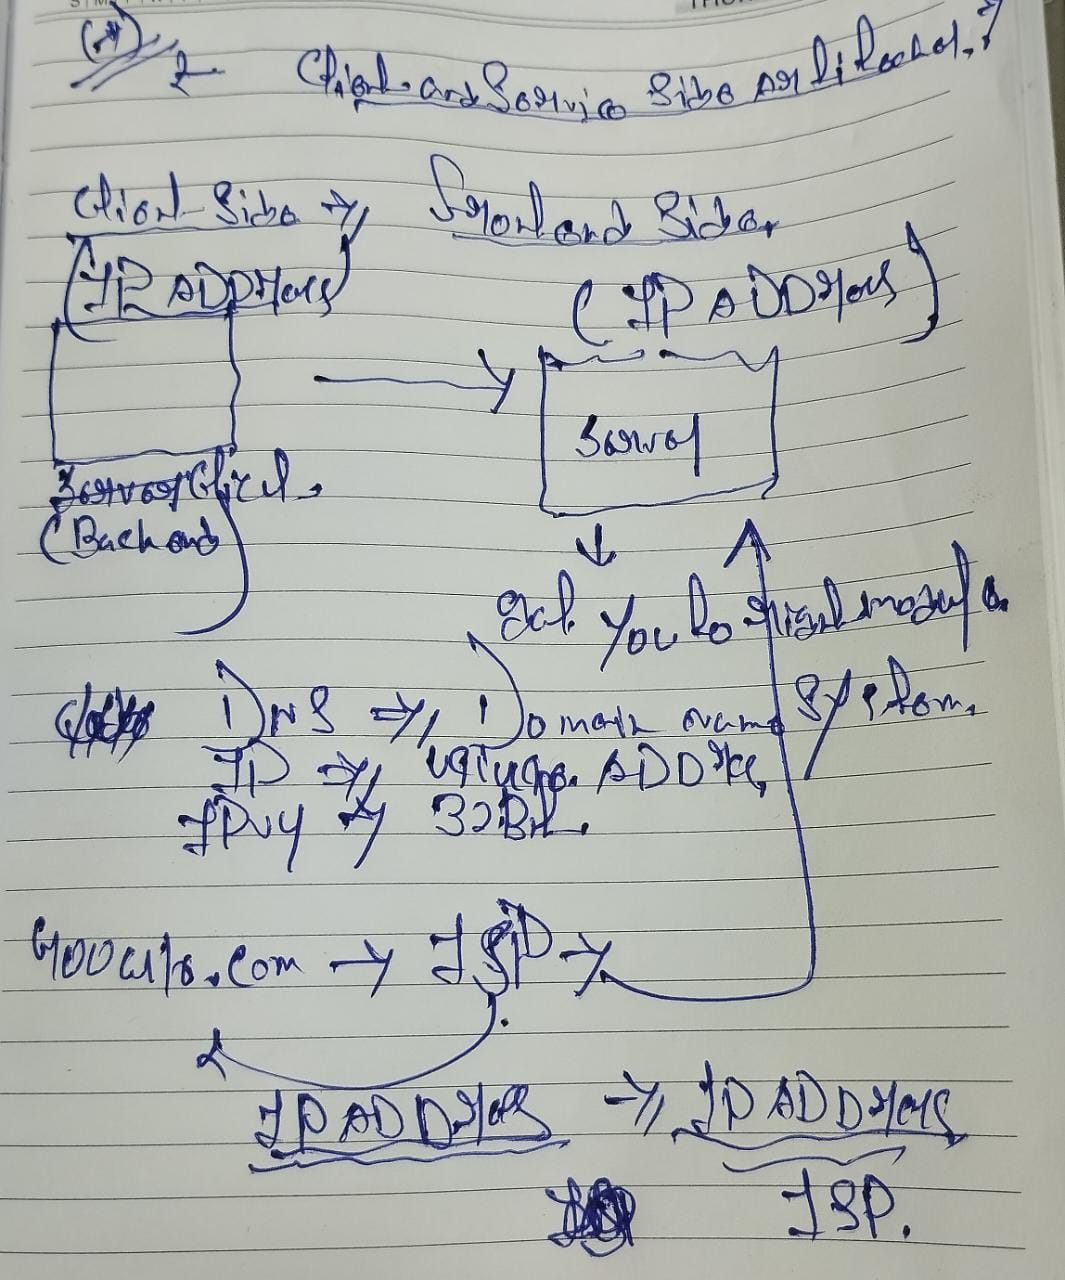 (*) 2 Client and Service Side
Client Side → Frontend Side.
(IP ADDress) (IP ADDress)
Server
Server Client.
(Backend)
You to
DNS → Domain name System.
IP → unique ADDress
IPv4 → 32 Bit.
google.com → ISP →
IP ADDress → IP ADDress
ISP.